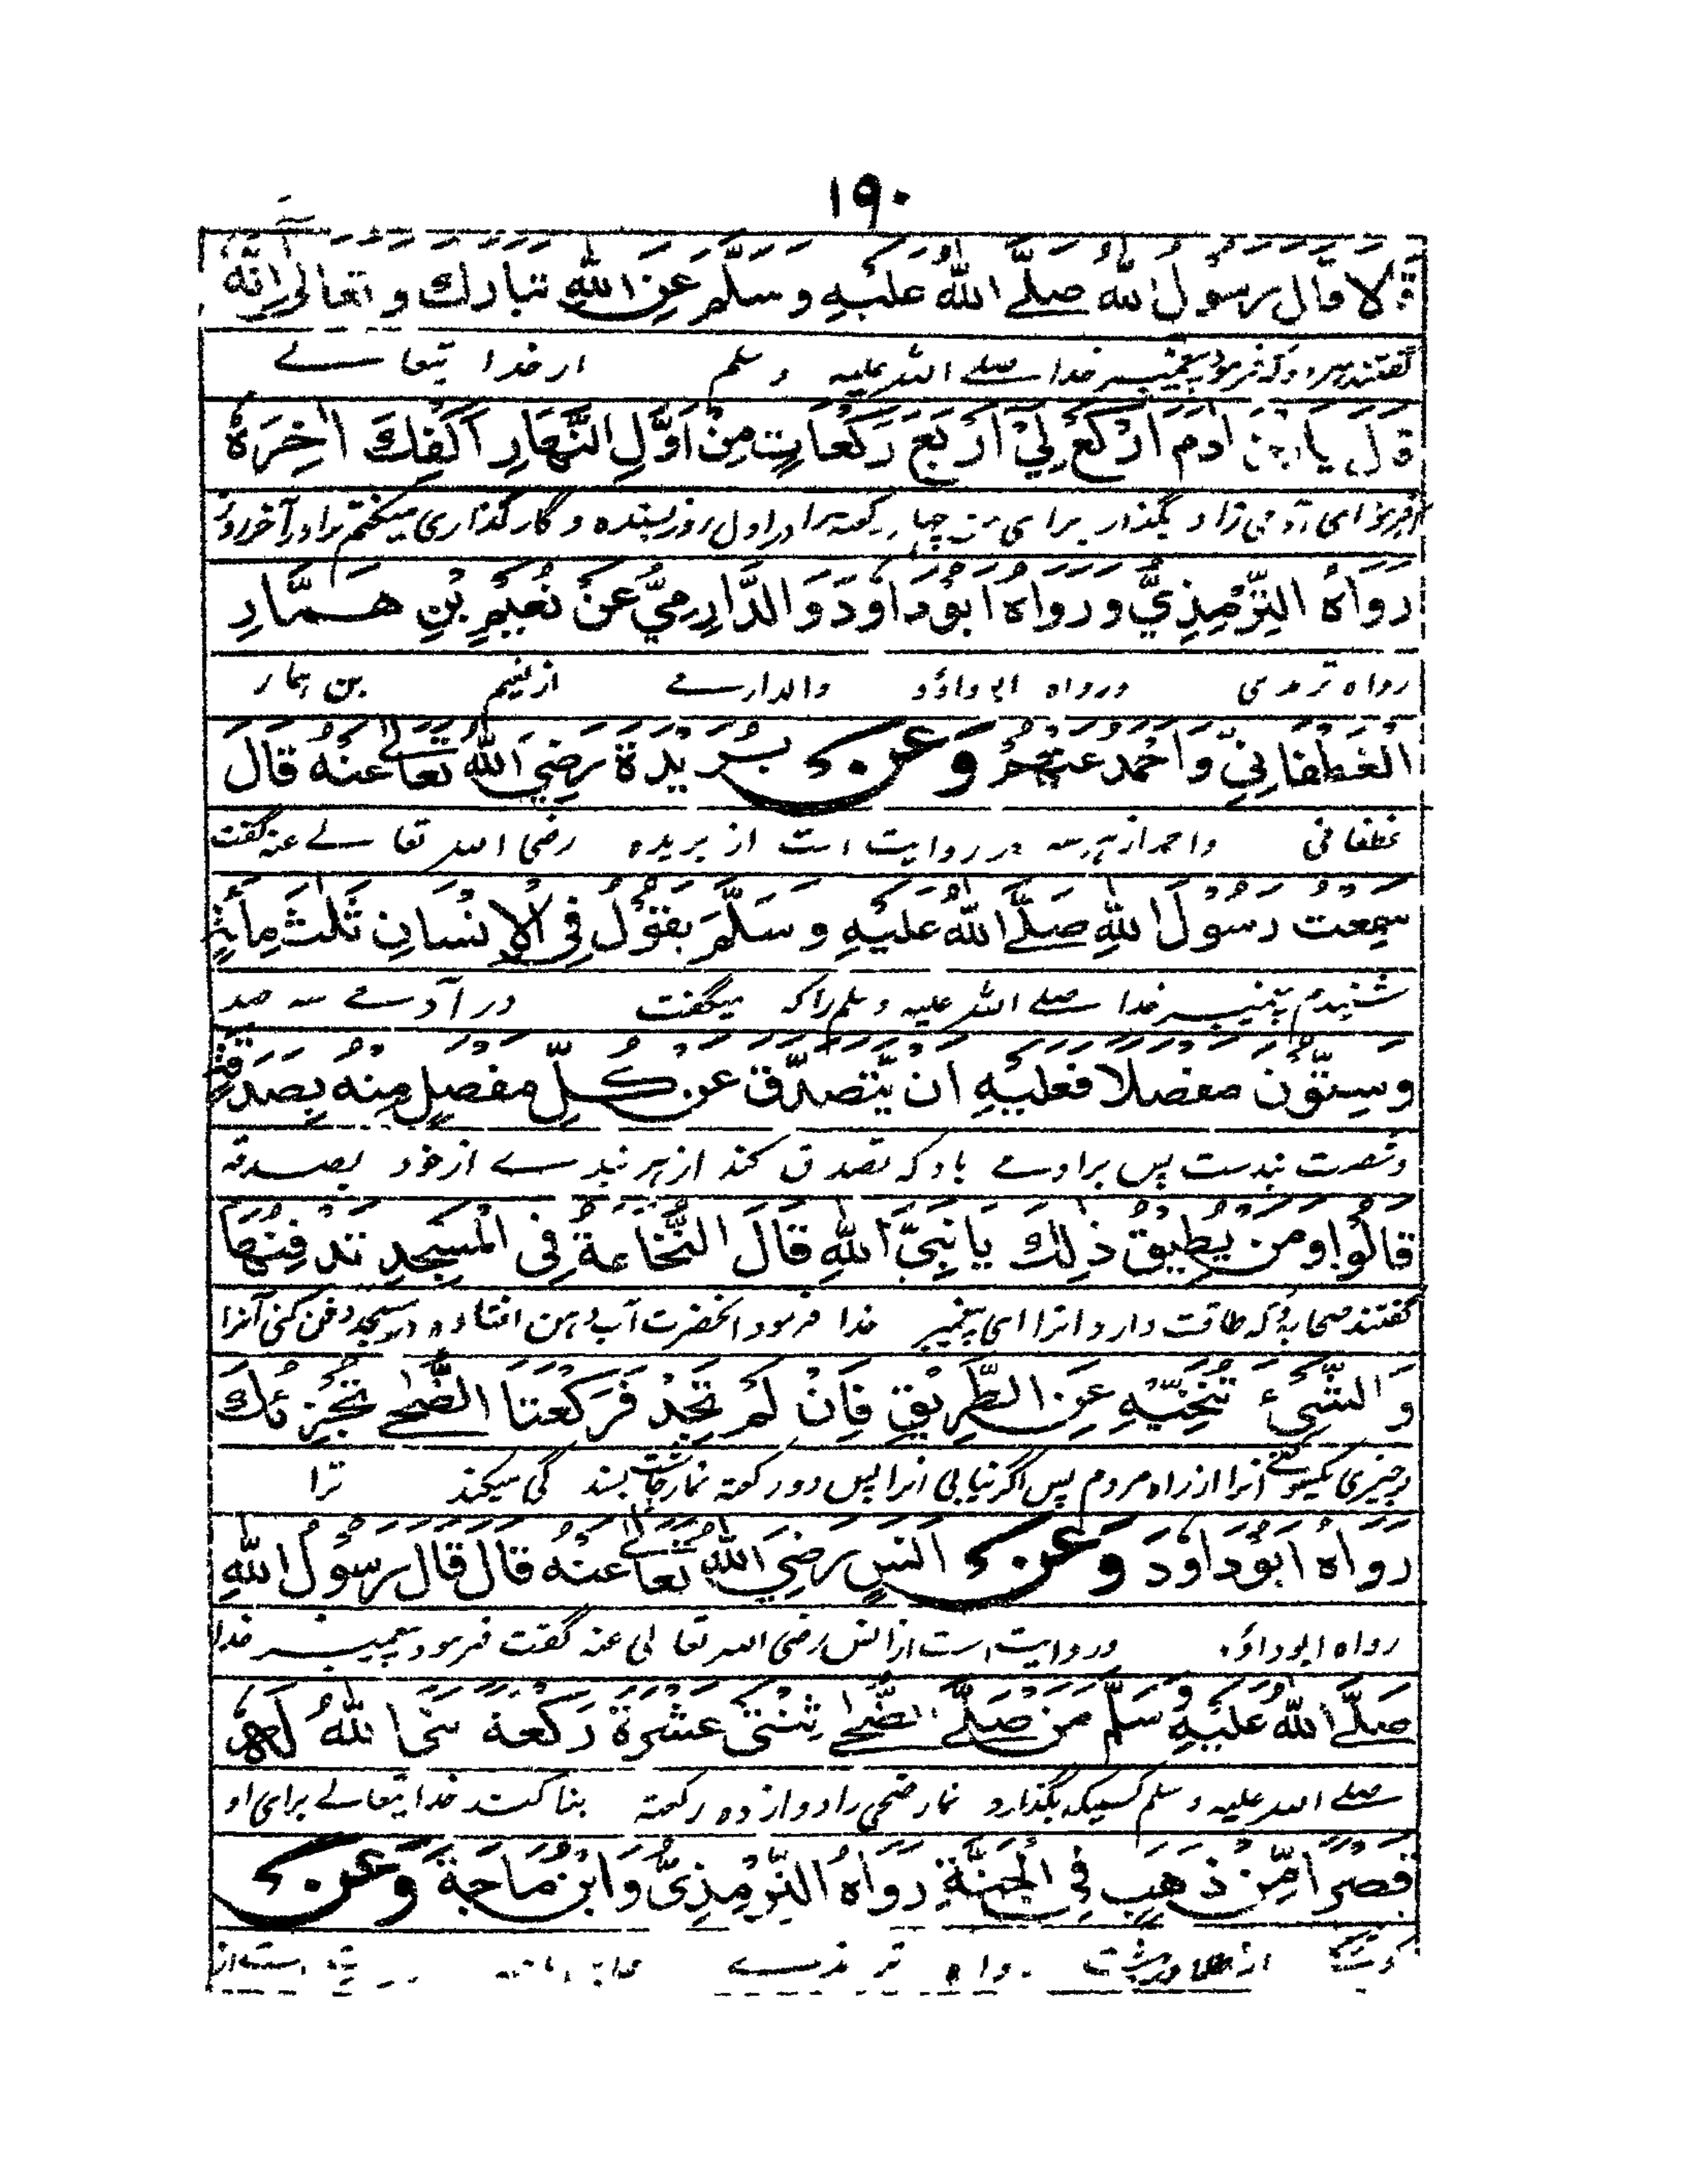 ١٩٠
قَالَا قَالَ رَسُوْلُ اللهِ صَلَّے اللهُ عَلَيْهِ وَسَلَّمَ عَنِ اللهِ تَبَارَكَ وَتَعَالٰى اِنَّهٗ
گفتند هردو که فرمود پیغمبر خدا صلے الله علیه وسلم از خدا یتعالے
قَالَ يَا ابْنَ اٰدَمَ ارْكَعْ لِيْ اَرْبَعَ رَكَعَاتٍ مِنْ اَوَّلِ النَّهَارِ اَكْفِكَ اٰخِرَهٗ
فرمود ای آدمی زاد بگذار برای من چهار رکعت را در اول روز بسنده و کارگذاری میکنم ترا در آخر روز
رَوَاهُ التِّرْمِذِيُّ وَرَوَاهُ اَبُوْدَاوٗدَ وَالدَّارِمِيُّ عَنْ نُعَيْمِ بْنِ هَمَّارِ
رواه ترمذی ورواه ابوداؤد والدارمے از نعیم بن همار
الْغَطْفَانِيِّ وَاَحْمَدُ عَنْهُمْ وَعَنْ بُرَيْدَةَ رَضِيَ اللهُ تَعَالٰے عَنْهُ قَالَ
غطفانی واحمد از هرسه در روایت است از بریده رضی الله تعالے عنه گفت
سَمِعْتُ رَسُوْلَ اللهِ صَلَّے اللهُ عَلَيْهِ وَسَلَّمَ يَقُوْلُ فِي الْاِنْسَانِ ثَلٰثُ مِأَئَةٍ
شنیدم پیغمبر خدا صلے الله علیه وسلم را که میگفت در آدمے سه صد
وَسِتُّوْنَ مَفْصِلًا فَعَلَيْهِ اَنْ يَّتَصَدَّقَ عَنْ كُلِّ مَفْصِلٍ مِنْهُ بِصَدَقَةٍ
وشصت بندست پس براوست باد که تصدق کند از هر بندے از خود بصدقه
قَالُوْا وَمَنْ يُطِيْقُ ذٰلِكَ يَا نَبِيَّ اللهِ قَالَ النُّخَاعَةُ فِي الْمَسْجِدِ تَدْفِنُهَا
گفتند صحابه که طاقت دارد انرا ای پیغمبر خدا فرمود انحضرت آب دهن افتاده در مسجد دفن کنی آنرا
وَالشَّيْءُ تُنَحِّيْهِ عَنِ الطَّرِيْقِ فَاِنْ لَمْ تَجِدْ فَرَكْعَتَا الضُّحٰے تُجْزِئُكَ
چیزی یکسو کنے انرا از راه مردم پس اگر نیابی انرا پس دو رکعت نماز چاشت بسندگی میکند ترا
رَوَاهُ اَبُوْدَاوٗدَ وَعَنْ اَنَسٍ رَضِيَ اللهُ تَعَالٰے عَنْهُ قَالَ قَالَ رَسُوْلُ اللهِ
رواه ابوداؤد وروایت است از انس رضی الله تعالی عنه گفت فرمود پیغمبر خدا
صَلَّے اللهُ عَلَيْهِ وَسَلَّمَ مَنْ صَلَّے الضُّحٰے ثِنْتَيْ عَشْرَةَ رَكْعَةً بَنَى اللهُ لَهٗ
صلے الله علیه وسلم کسیکه بگذارد نماز ضحی را دوازده رکعت بنا کند خدا یتعالے برای او
قَصْرًا مِّنْ ذَهَبٍ فِي الْجَنَّةِ رَوَاهُ التِّرْمِذِيُّ وَابْنُ مَاجَةَ وَعَنْ
کوشک از طلا در بهشت رواه ترمذے است از